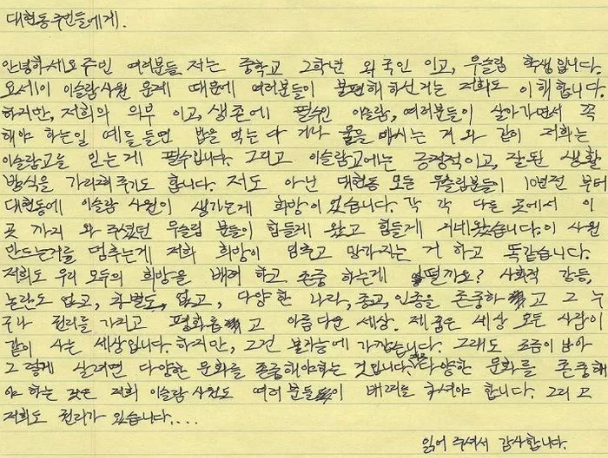 대현동 주민들에게.
안녕하세요 주민 여러분들 저는 중학교 2학년 외국인 이고, 무슬림 학생입니다.
요세이 이슬람사원 문제 때문에 여러분들이 불편해 하신거는 저희도 이해합니다.
하지만, 저희의 의무 이고, 생존에 필수인 이슬람, 여러분들이 살아가면서 꼭
해야 하는일 예를들면 밥을 먹는 다 거나 물을 마시는 거 와 같이 저희는
이슬람교을 믿는게 필수입니다. 그리고 이슬람교에는 긍정적이고, 잘된 생활
방식을 가리쳐주기도 합니다. 저도 아닌 대현동 모든 무슬림분들이 10년전 부터
대현동에 이슬람 사원이 생기는게 희망이었습니다. 각 각 다른 곳에서 이
곳 까지 와 주셨던 무슬림 분들이 힘들게 왔고 힘들게 지내왔습니다. 이 사원
만드는거를 멈추는게 저희 희망이 멈추고 망가지는 거 하고 똑같습니다.
저희도 우리 모두의 희망을 배려 하고 존중 하는게 어떨까요? 사회적 갈등,
논란도 없고, 차별도, 없고, 다양한 나라, 종교, 인종을 존중하고 그 누
구나 권리를 가지고 평화롭고 아름다운 세상. 제 꿈은 세상 모든 사람이
같이 사는 세상입니다. 하지만, 그건 불가능에 가깝습니다. 그래도 조금이 남아
그렇게 살려면 다양한 문화를 존중해야하는 것입니다. 다양한 문화를 존중해
야 하는 것은 저희 이슬람사원도 여러분들이 배려를 하셔야 합니다. 그리고
저희도 권리가 있습니다....
읽어 주셔서 감사합니다.